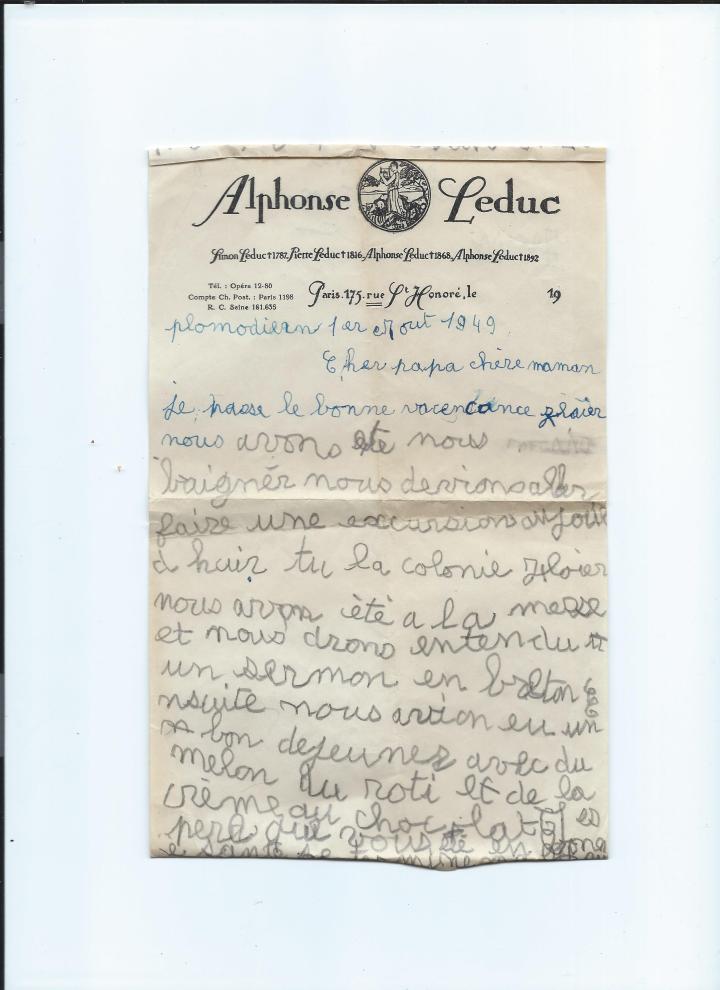 Alphonse Leduc
Simon Leduc†1782, Pierre Leduc†1816, Alphonse Leduc†1868, Alphonse Leduc†1892
Tél. : Opéra 12-80
Compte Ch. Post. : Paris 1198
R. C. Seine 161.635
Paris. 175. rue St Honoré, le 19
plomodiern 1er Aout 1949
Cher papa chère maman
je passe le bonne
nous avons été nous
baignér nous devions aller
faire une excursion
la colonie
nous avon été a la messe
et nous avons entendu
un sermon en breton E
nsuite nous avion eu un
bon dejeuner avec du
melon du roti et de la
crème au chocolat es
pere que vous ete en bonn
e sante je termine